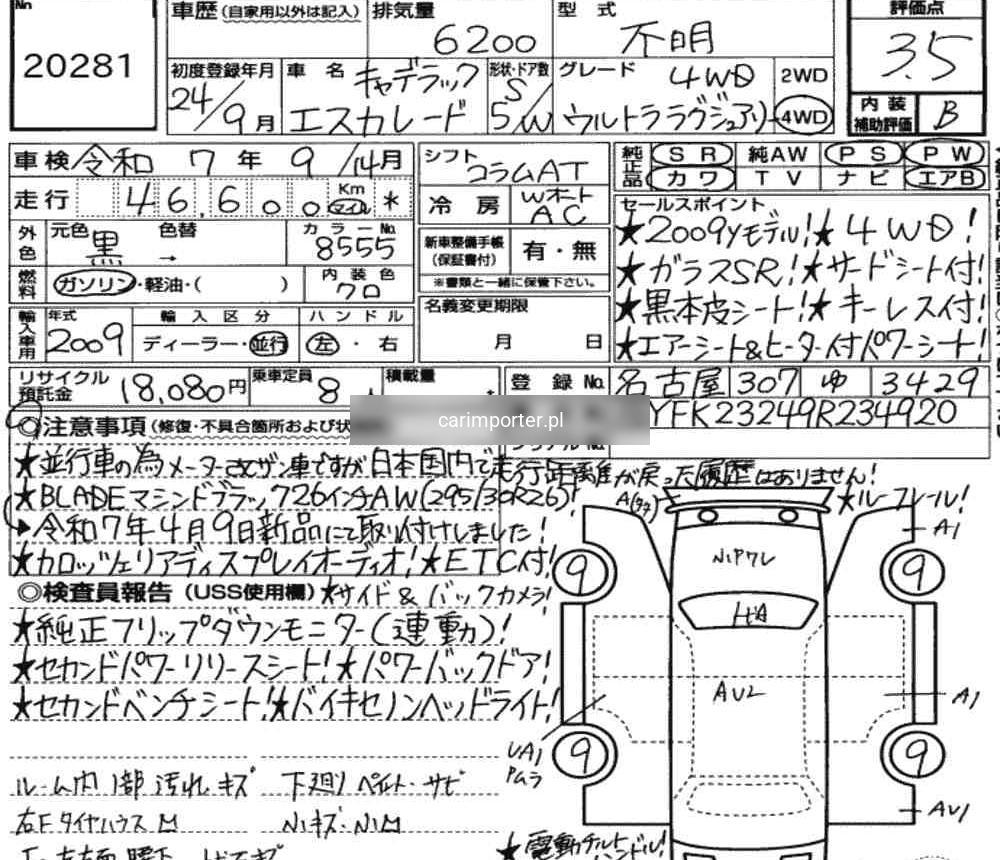 No
20281
車歴 (自家用以外は記入)
排気量
6200
型式
不明
評価点
3.5
初度登録年月
24/9月
車名
キャデラック
エスカレード
形状・ドア数
S/W
5
グレード
4WD
ウルトララグジュアリー
2WD
4WD
内装補助評価
B
車検 令和 7年 9/14月
シフト
コラムAT
純正品
SR 純AW PS PW
カワ TV ナビ エアB
走行 46,600 Km マイル *
冷房
Wオート
AC
外色
元色
黒
色替
→
カラーNo.
8555
新車整備手帳
(保証書付)
有・無
※書類と一緒に保管下さい。
燃料
ガソリン・軽油・( )
内装色
クロ
名義変更期限
月 日
セールスポイント
★2009yモデル!★4WD!
★ガラスSR!★サードシート付!
★黒本皮シート!★キーレス付!
★エアーシート&ヒーター付パワーシート!
輸入車用
年式
2009
輸入区分
ディーラー・並行
ハンドル
左・右
リサイクル預託金
18,080円
乗車定員
8人
積載量
登録No.
名古屋 307 ゆ 3429
YFK23249R234920
carimporter.pl
◎注意事項 (修復・不具合箇所および状
★並行車の為メーター改ザン車ですが日本国内で走行距離が戻った履歴はありません!
★BLADEマシンドブラック26インチAW(295/30R26)!
▶令和7年4月9日新品にて取り付けしました!
★カロッツェリアディスプレイオーディオ!★ETC付!
★ルーフレール!
◎検査員報告 (USS使用欄)
★サイド&バックカメラ!
★純正フリップダウンモニター(連動)!
★セカンドパワーリリースシート!★パワーバックドア!
★セカンドベンチシート!★バイキセノンヘッドライト!
ルーム内 1部 汚れ キズ
下廻り ペイント・サビ
右Fタイヤハウス
★電動チルトハンドル!
A1
9
9
AU2
A1
UA1
9
9
AU1